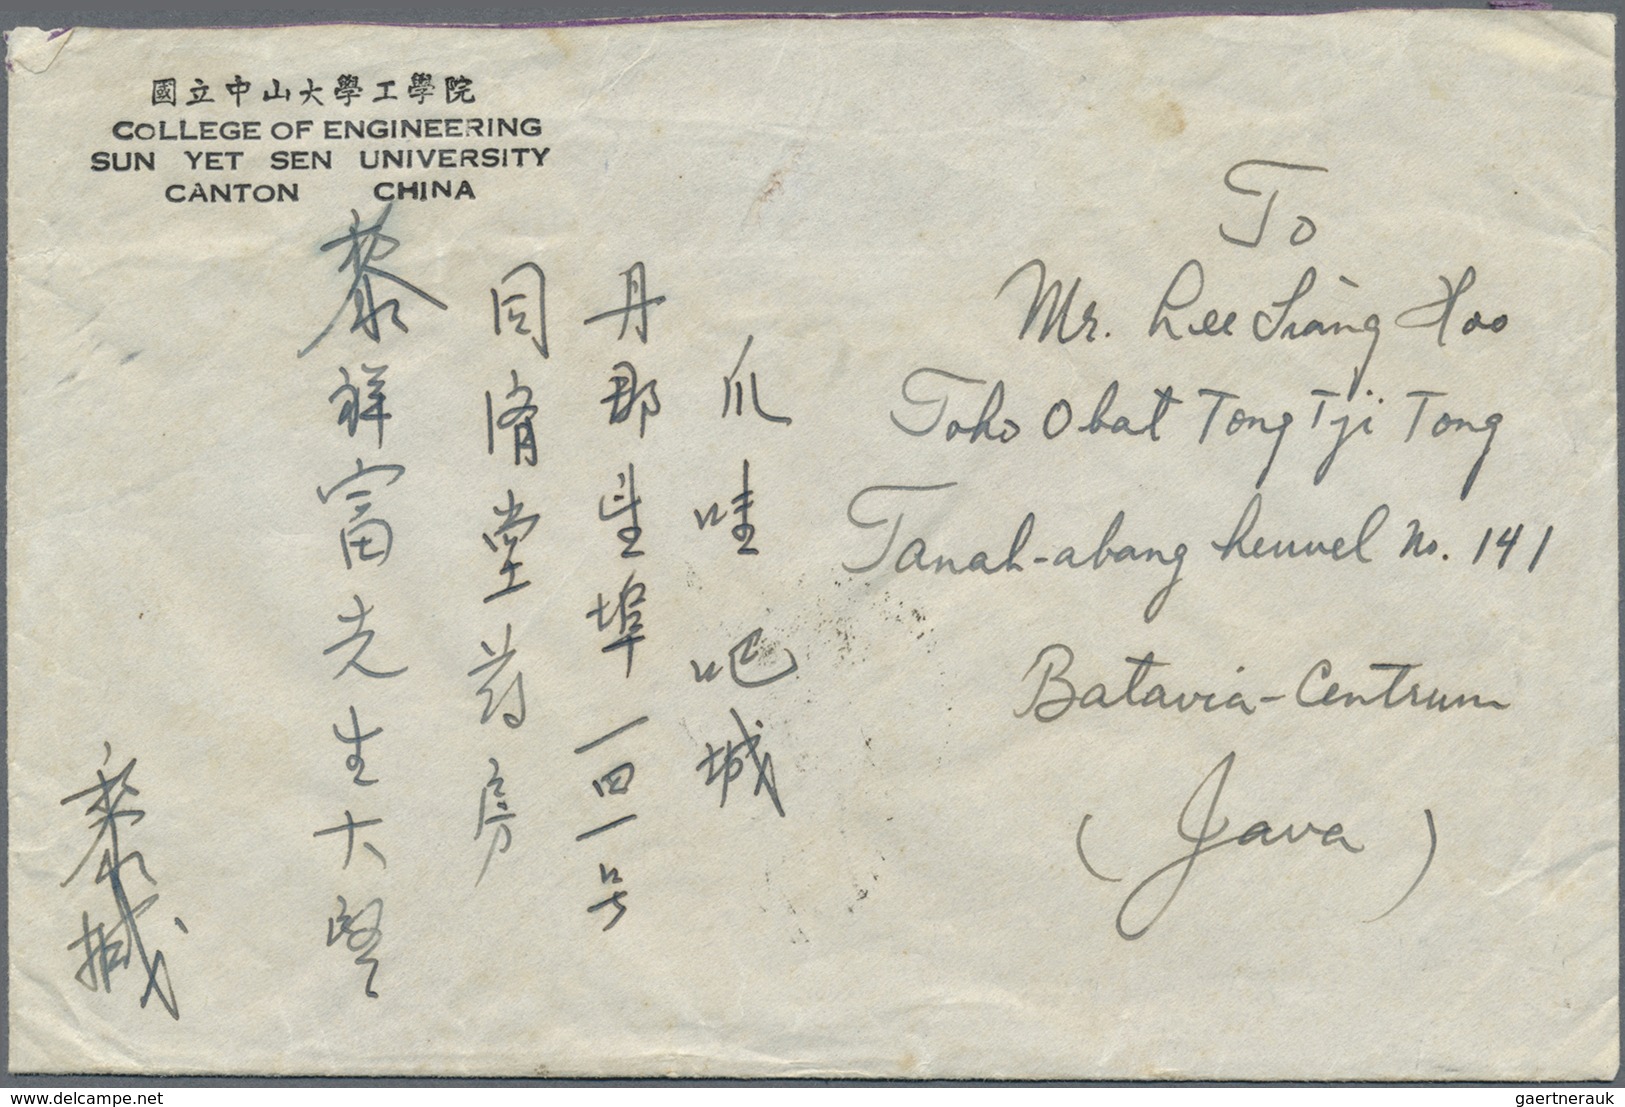 國立中山大學工學院
COLLEGE OF ENGINEERING
SUN YET SEN UNIVERSITY
CANTON CHINA
To
Mr. Lee Siang Hoo
Toko Obat Tong Tji Tong
Tanah-abang heuvel No. 141
Batavia-Centrum
(Java)
爪哇 吧城
丹那望埠一四一号
同濟堂药房
黎祥富先生大鑒
黎械
delcampe.net
gaertnerauk